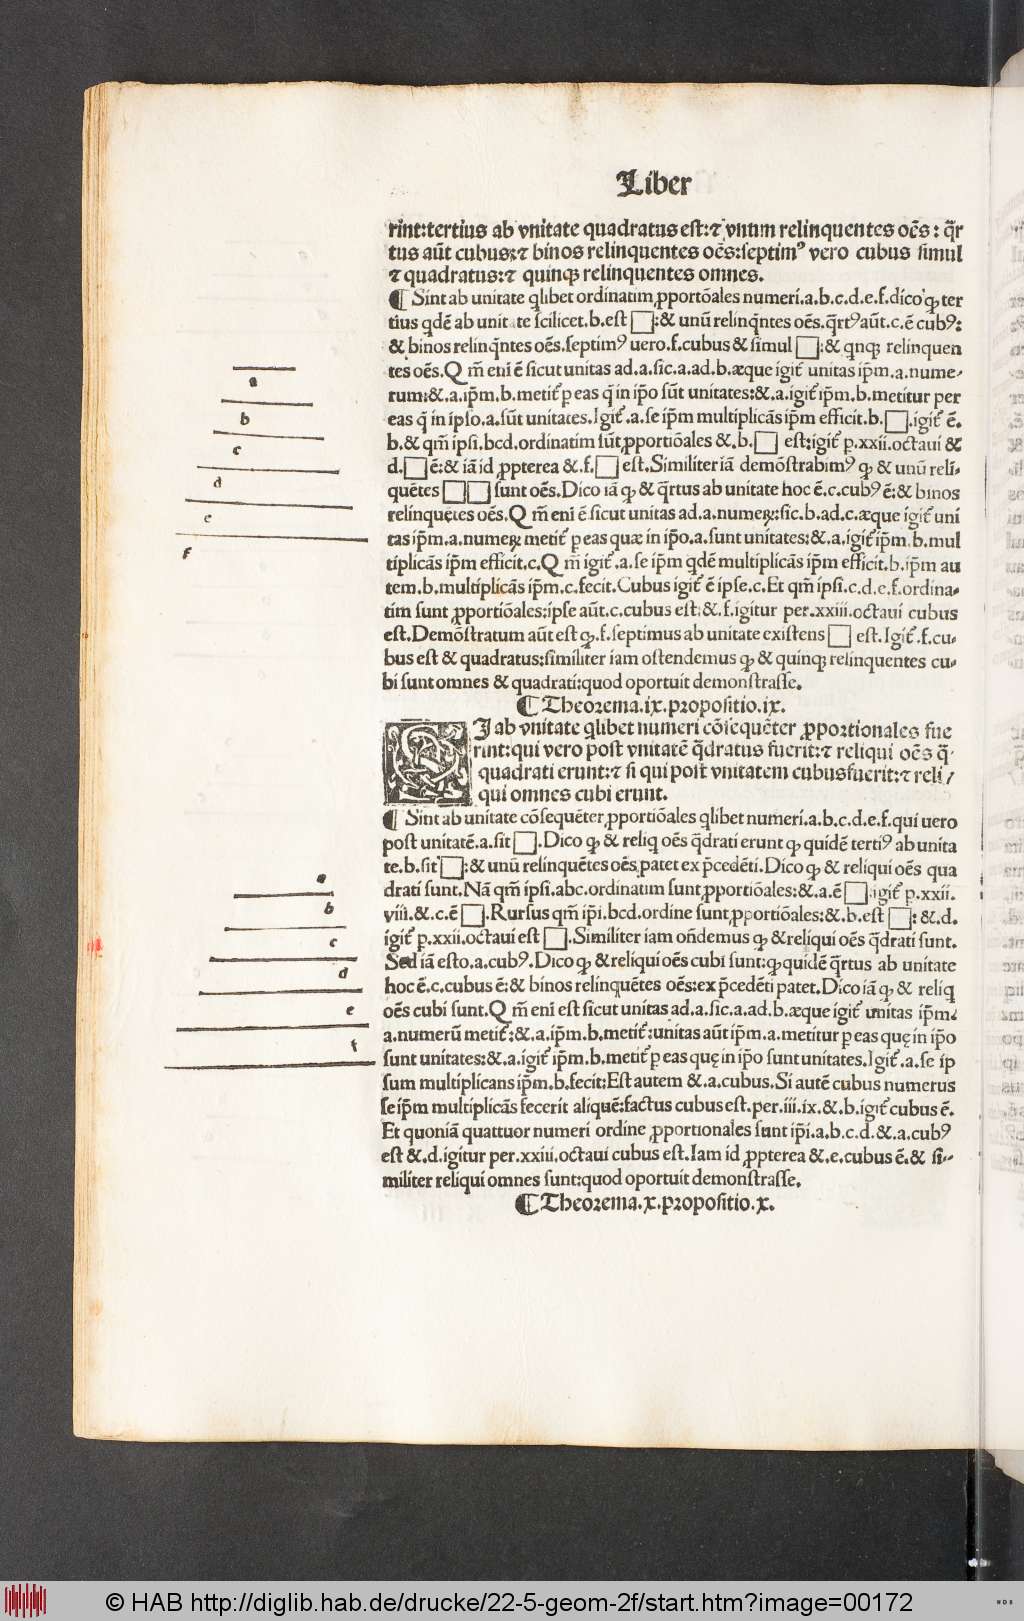 Liber
rint:tertius ab vnitate quadratus est:⁊ vnum relinquentes oẽs: q̃r
tus aũt cubus:⁊ binos relinquentes oẽs:septimꝰ vero cubus simul
⁊ quadratus:⁊ quinqꝫ relinquentes omnes.
¶ Sint ab unitate qlibet ordinatim ꝓportiõales numeri.a.b.c.d.e.f.dico ꝙ ter
tius qdẽ ab unitate scilicet.b.est □:& unũ relinq̃ntes oẽs.q̃rtꝰ aũt.c.ẽ cubꝰ:
& binos relinq̃ntes oẽs.septimꝰ uero.f.cubus & simul □:& qnqꝫ relinquen
tes oẽs.Qm̃ eni ẽ sicut unitas ad.a.sic.a.ad.b.æque igit̃ unitas ip̃m.a.nume-
rum:&.a.ip̃m.b.metit̃ ꝑ eas q̃ in ip̃o sũt unitates:&.a.igit̃ ip̃m.b.metitur per
eas q̃ in ipso.a.sũt unitates.Igit̃.a.se ip̃m multiplicãs ip̃m efficit.b.□.igit̃ ẽ.
b.& qm̃ ipsi.bcd.ordinatim sũt ꝓportiõales &.b.□ est:igit̃ ꝑ.xxii.octaui &
d.□ ẽ:& iã id ꝓpterea &.f.□ est.Similiter iã demõstrabimꝰ ꝙ & unũ reli-
quẽtes □□ sunt oẽs.Dico iã ꝙ & q̃rtus ab unitate hoc ẽ.c.cubꝰ ẽ:& binos
relinquẽtes oẽs.Qm̃ eni ẽ sicut unitas ad.a.numeꝝ:sic.b.ad.c.æque igit̃ uni
tas ip̃m.a.numeꝝ metit̃ ꝑ eas quæ in ip̃o.a.sunt unitates:&.a.igit̃ ip̃m.b.mul
tiplicãs ip̃m efficit.c.Qm̃ igit̃.a.se ip̃m qdẽ multiplicãs ip̃m efficit.b.ip̃m au
tem.b.multiplicãs ip̃m.c.fecit.Cubus igit̃ ẽ ipse.c.Et qm̃ ipsi.c.d.e.f.ordina-
tim sunt ꝓportiõales:ipse aũt.c.cubus est:&.f.igitur per.xxiii.octaui cubus
est.Demõstratum aũt est ꝙ.f.septimus ab unitate existens □ est.Igit̃.f.cu-
bus est & quadratus:similiter iam ostendemus ꝙ & quinqꝫ relinquentes cu-
bi sunt omnes & quadrati:quod oportuit demonstrasse.
¶ Theorema.ix.propositio.ix.
SI ab vnitate qlibet numeri cõsequẽter ꝓportionales fue
rint:qui vero post vnitatẽ q̃dratus fuerit:⁊ reliqui oẽs q̃
quadrati erunt:⁊ si qui post vnitatem cubus fuerit:⁊ reli/
qui omnes cubi erunt.
¶ Sint ab unitate cõsequẽter ꝓportiõales qlibet numeri.a.b.c.d.e.f.qui uero
post unitatẽ.a.sit □.Dico ꝙ & reliq oẽs q̃drati erunt ꝙ quidẽ tertiꝰ ab unita
te.b.sit □:& unũ relinquẽtes oẽs patet ex p̃cedẽti.Dico ꝙ & reliqui oẽs qua
drati sunt.Nã qm̃ ipsi.abc.ordinatim sunt ꝓportiõales:&.a.ẽ □.igit̃ ꝑ.xxii.
viii.&.c.ẽ □.Rursus qm̃ ip̃i.bcd.ordine sunt ꝓportiõales:&.b.est □:&.d.
igit̃ ꝑ.xxii.octaui est □.Similiter iam oñdemus ꝙ & reliqui oẽs q̃drati sunt.
Sed iã esto.a.cubꝰ.Dico ꝙ & reliqui oẽs cubi sunt:ꝙ quidẽ q̃rtus ab unitate
hoc ẽ.c.cubus ẽ:& binos relinquẽtes oẽs:ex p̃cedẽti patet.Dico iã ꝙ & reliq
oẽs cubi sunt.Qm̃ eni est sicut unitas ad.a.sic.a.ad.b.æque igit̃ unitas ip̃m.
a.numerũ metit̃:&.a.ip̃m.b.metit̃:unitas aũt ip̃m.a.metitur ꝑ eas quę in ip̃o
sunt unitates:&.a.igit̃ ip̃m.b.metit̃ ꝑ eas quę in ip̃o sunt unitates.Igit̃.a.se ip
sum multiplicans ip̃m.b.fecit:Est autem &.a.cubus.Si autẽ cubus numerus
se ip̃m multiplicãs fecerit aliquẽ:factus cubus est.per.iii.ix.&.b.igit̃ cubus ẽ.
Et quoniã quattuor numeri ordine ꝓportionales sunt ip̃i.a.b.c.d.&.a.cubꝰ
est &.d.igitur per.xxiii.octaui cubus est.Iam id ꝓpterea &.e.cubus ẽ.& si-
militer reliqui omnes sunt:quod oportuit demonstrasse.
¶ Theorema.x.propositio.x.
a
b
c
d
e
f
a
b
c
d
e
f
© HAB http://diglib.hab.de/drucke/22-5-geom-2f/start.htm?image=00172